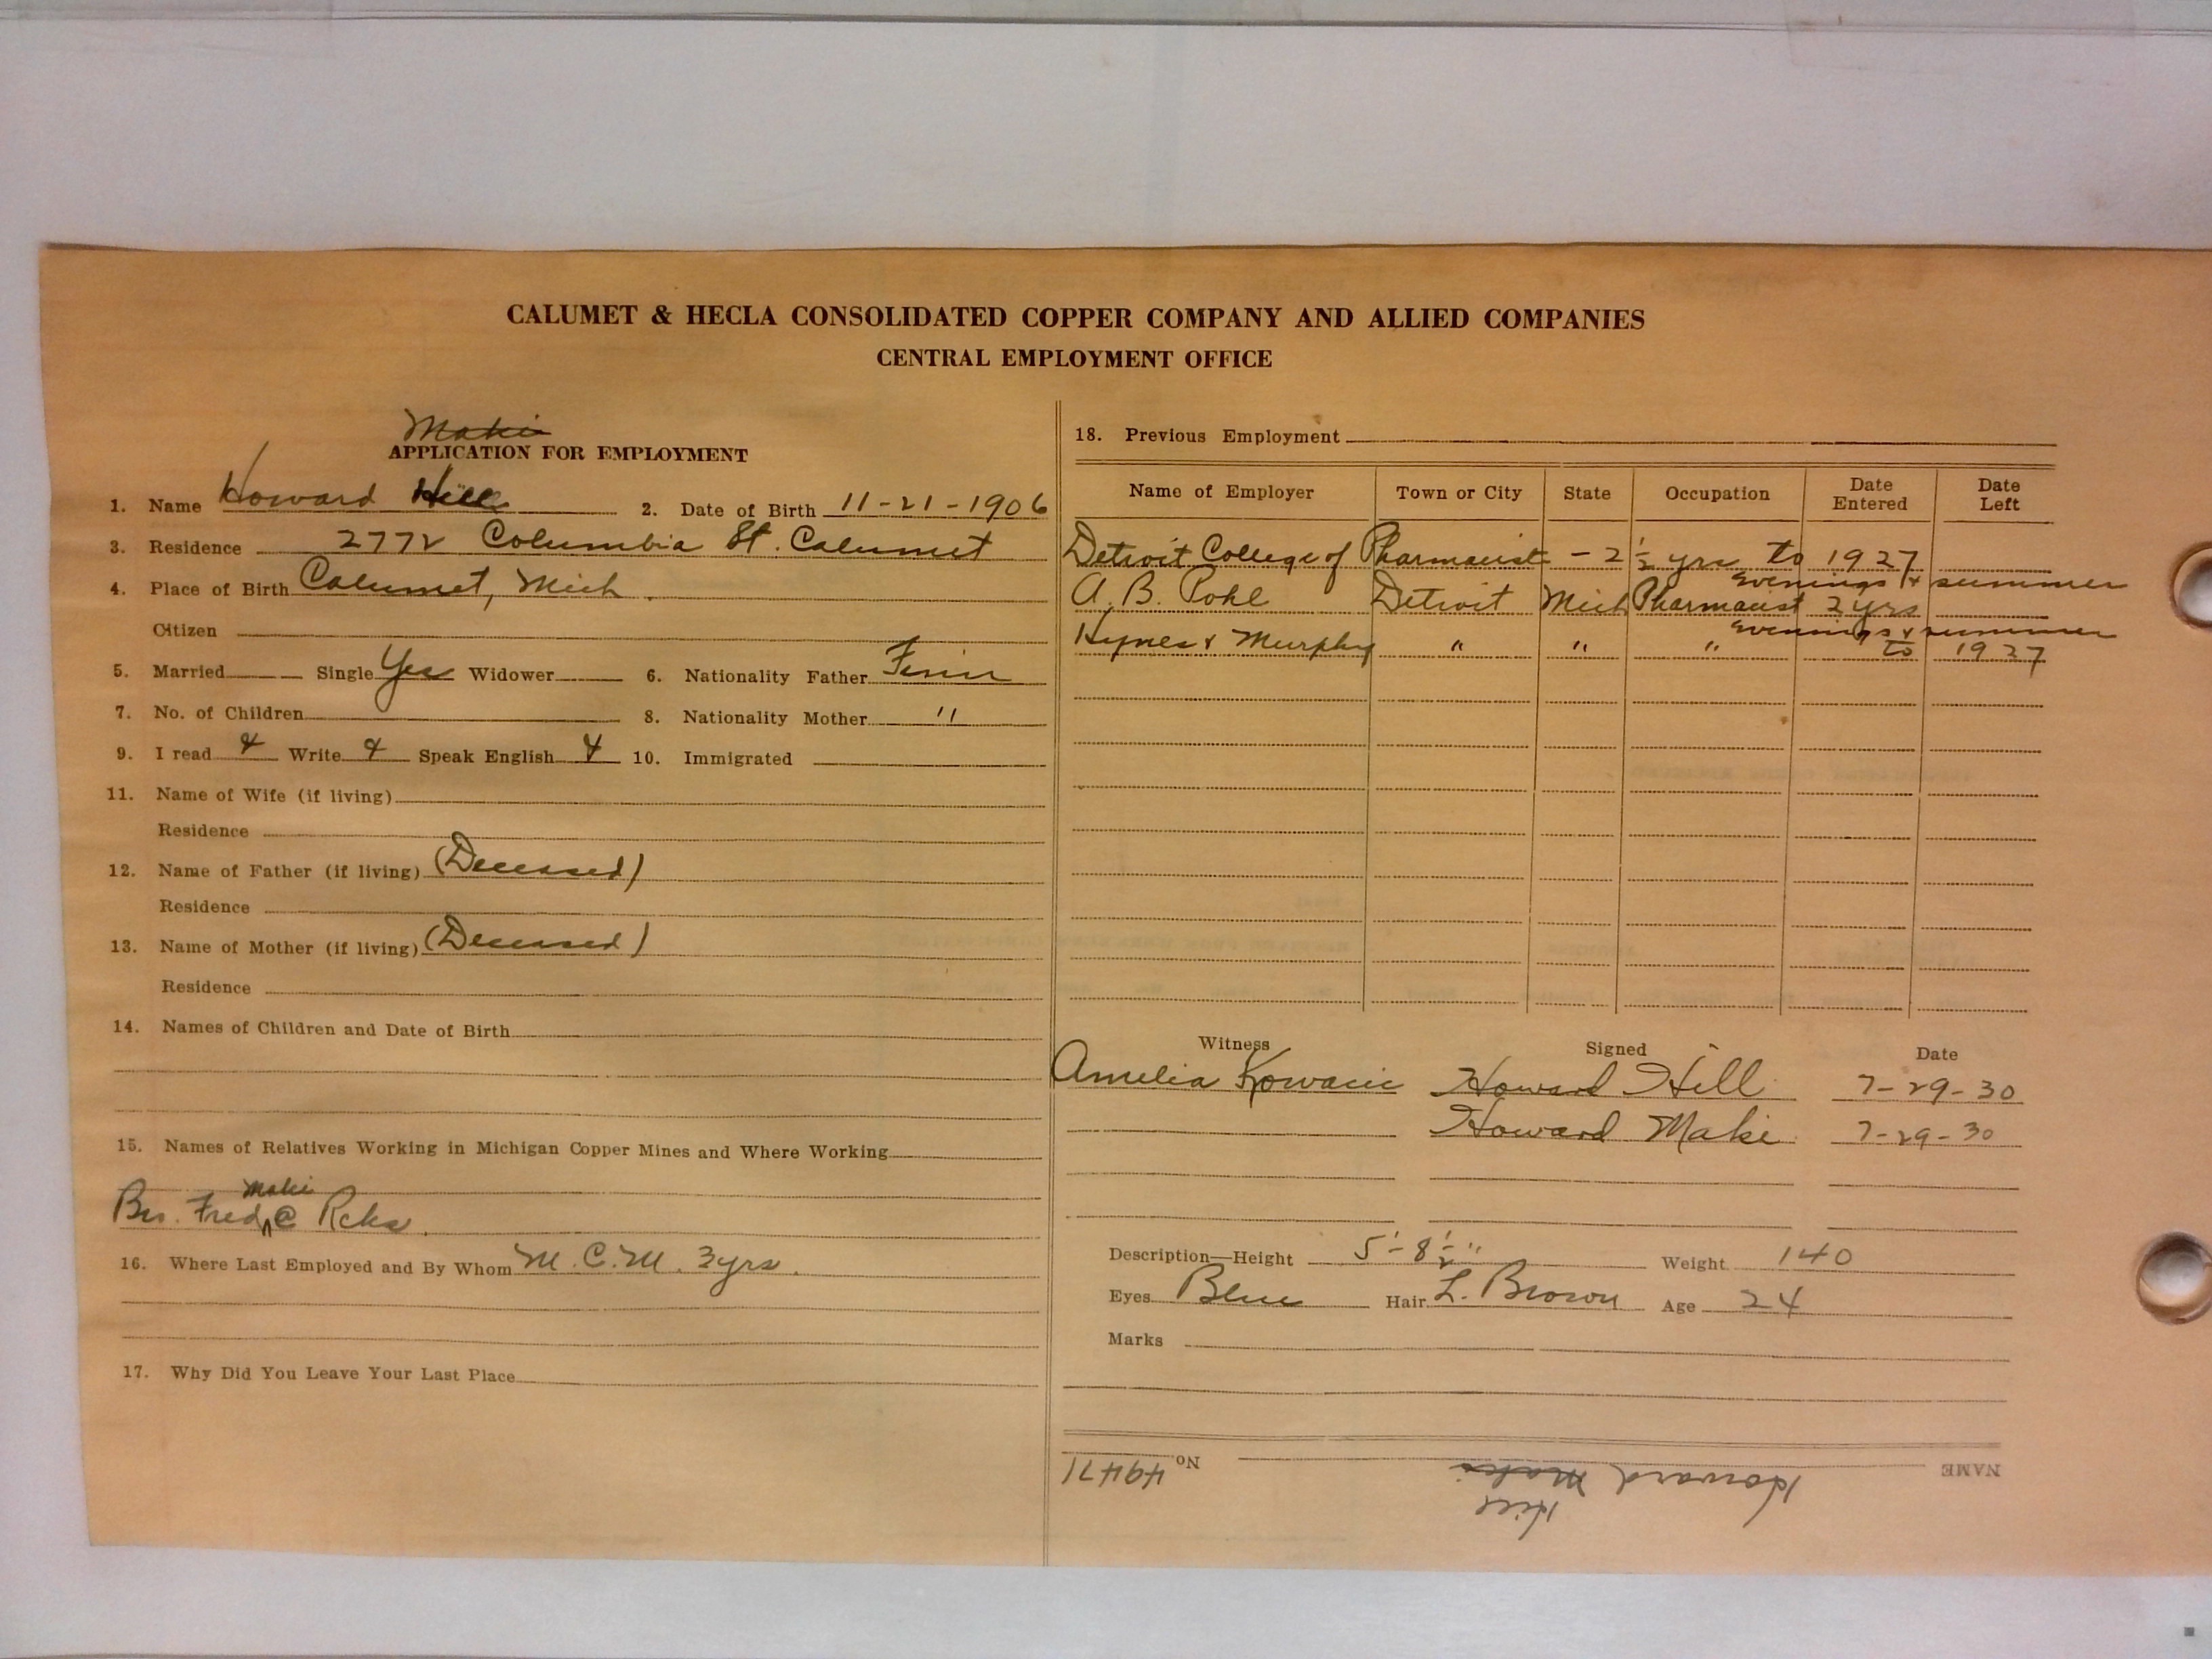 CALUMET & HECLA CONSOLIDATED COPPER COMPANY AND ALLIED COMPANIES
CENTRAL EMPLOYMENT OFFICE
Maki
APPLICATION FOR EMPLOYMENT
1. Name Howard Hill 2. Date of Birth 11-21-1906
3. Residence 2772 Columbia St. Calumet
4. Place of Birth Calumet, Mich.
Citizen
5. Married Single Yes Widower 6. Nationality Father Finn
7. No. of Children 8. Nationality Mother "
9. I read Y Write Y Speak English Y 10. Immigrated
11. Name of Wife (if living)
Residence
12. Name of Father (if living) (Deceased)
Residence
13. Name of Mother (if living) (Deceased)
Residence
14. Names of Children and Date of Birth
15. Names of Relatives Working in Michigan Copper Mines and Where Working
Maki
Bro. Fred @ Rcks.
16. Where Last Employed and By Whom M.C.M. 3yrs.
17. Why Did You Leave Your Last Place
18. Previous Employment
Name of Employer Town or City State Occupation Date Entered Date Left
Detroit College of Pharmacist - 2 1/2 yrs to 1927
evenings & summer
A. B. Pohl Detroit Mich Pharmacist 2 yrs
evenings & summer
Hynes & Murphy " " " to 1927
Witness Signed Date
Amelia Howard Hill 7-29-30
Howard Maki 7-29-30
Description—Height 5'-8 1/2" Weight 140
Eyes Blue Hair L. Brown Age 24
Marks
NAME Howard Maki No 49471
Hill